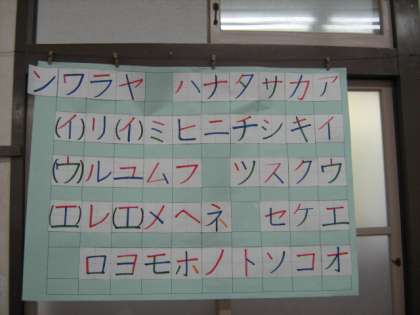 アイウエオ
カキクケコ
サシスセソ
タチツト
ナニネノ
ハヒフヘホ
ミムメモ
ヤ(イ)ユ(エ)ヨ
ラリルレロ
ワ(イ)(ウ)(エ)
ン